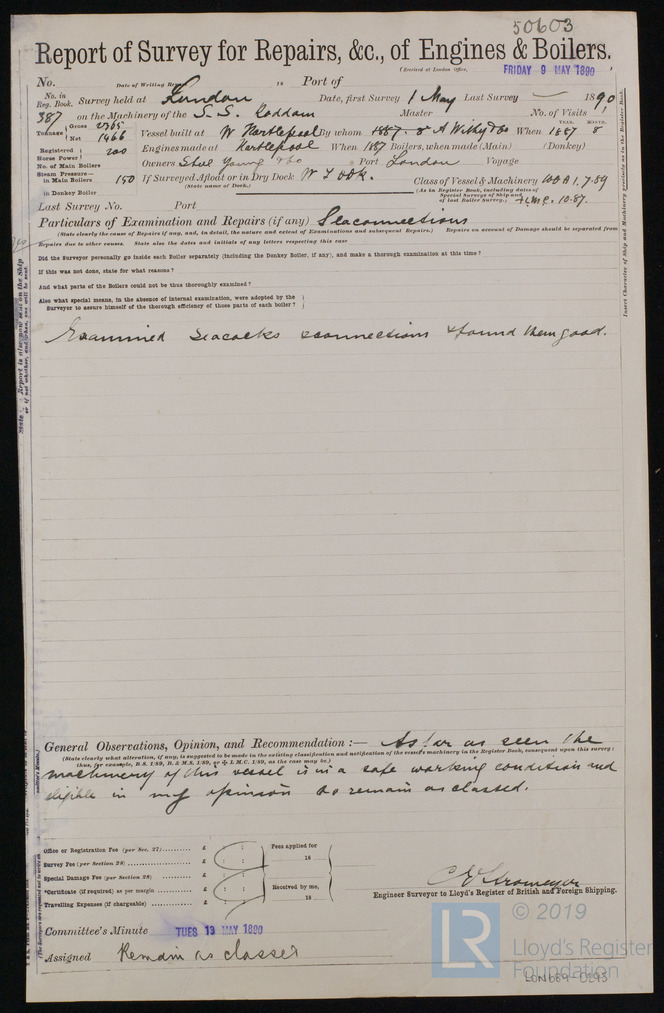 50603
Report of Survey for Repairs, &c., of Engines & Boilers.
(Received at London Office,
FRIDAY 9 MAY 1890
No. Date of Writing Report 18 Port of
No. in Reg. Book. Survey held at London Date, first Survey 1 May Last Survey — 1890
387 on the Machinery of the S.S. Roddam Master No. of Visits 1
Tonnage Gross 2365 Net 1466 Vessel built at W Hartlepool By whom 1887 - 8 A Withy & Co When YEAR. 1887 MONTH. 8
Registered Horse Power 200 Engines made at Hartlepool When 1887 Boilers, when made (Main) (Donkey)
No. of Main Boilers Owners Steel Young & Co Port London Voyage
Steam Pressure— in Main Boilers 150 If Surveyed Afloat or in Dry Dock W I Dk. Class of Vessel & Machinery 100A1. 7.89
(State name of Dock.) (As in Register Book, including dates of Special Surveys of Ship and of last Boiler Survey.) + LMC. 10.87.
in Donkey Boiler
Last Survey No. Port
Particulars of Examination and Repairs (if any) Seaconnections
(State clearly the cause of Repairs if any, and, in detail, the nature and extent of Examinations and subsequent Repairs.) Repairs on account of Damage should be separated from
Repairs due to other causes. State also the dates and initials of any letters respecting this case
Did the Surveyor personally go inside each Boiler separately (including the Donkey Boiler, if any), and make a thorough examination at this time?
If this was not done, state for what reasons?
And what parts of the Boilers could not be thus thoroughly examined?
Also what special means, in the absence of internal examination, were adopted by the
Surveyor to assure himself of the thorough efficiency of those parts of each boiler?
Examined seacocks & connections & found them good.
General Observations, Opinion, and Recommendation :— As far as seen the
(State clearly what alteration, if any, is suggested to be made in the existing classification and notification of the vessel's machinery in the Register Book, consequent upon this survey;
thus, for example, B.S. 1/89, B. & M.S. 1/89, or ✠ L.M.C. 1/89, as the case may be.)
machinery of this vessel is in a safe working condition and
eligible in my opinion to remain as classed.
Office or Registration Fee (per Sec. 27) £ : : Fees applied for
Survey Fee (per Section 28) £ : : 18
Special Damage Fee (per Section 28) £
*Certificate (if required) as per margin £ : : Received by me,
Travelling Expenses (if chargeable) £ 18
C E Stromeyer
Engineer Surveyor to Lloyd's Register of British and Foreign Shipping.
Committee's Minute TUES 13 MAY 1890
Assigned Remain as classed
Insert Character of Ship and Machinery precisely as in the Register Book.
LR © 2019
Lloyd's Register
Foundation
LON689-0293